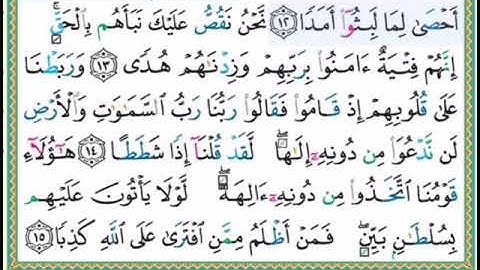 أَحْصَىٰ لِمَا لَبِثُوٓا۟ أَمَدًا ۝١٢ نَّحْنُ نَقُصُّ عَلَيْكَ نَبَأَهُم بِٱلْحَقِّ ۚ
إِنَّهُمْ فِتْيَةٌ ءَامَنُوا۟ بِرَبِّهِمْ وَزِدْنَٰهُمْ هُدًى ۝١٣ وَرَبَطْنَا
عَلَىٰ قُلُوبِهِمْ إِذْ قَامُوا۟ فَقَالُوا۟ رَبُّنَا رَبُّ ٱلسَّمَٰوَٰتِ وَٱلْأَرْضِ
لَن نَّدْعُوَا۟ مِن دُونِهِۦٓ إِلَٰهًا ۖ لَّقَدْ قُلْنَآ إِذًا شَطَطًا ۝١٤ هَٰٓؤُلَآءِ
قَوْمُنَا ٱتَّخَذُوا۟ مِن دُونِهِۦٓ ءَالِهَةً ۖ لَّوْلَا يَأْتُونَ عَلَيْهِم
بِسُلْطَٰنٍۭ بَيِّنٍ ۖ فَمَنْ أَظْلَمُ مِمَّنِ ٱفْتَرَىٰ عَلَى ٱللَّهِ كَذِبًا ۝١٥